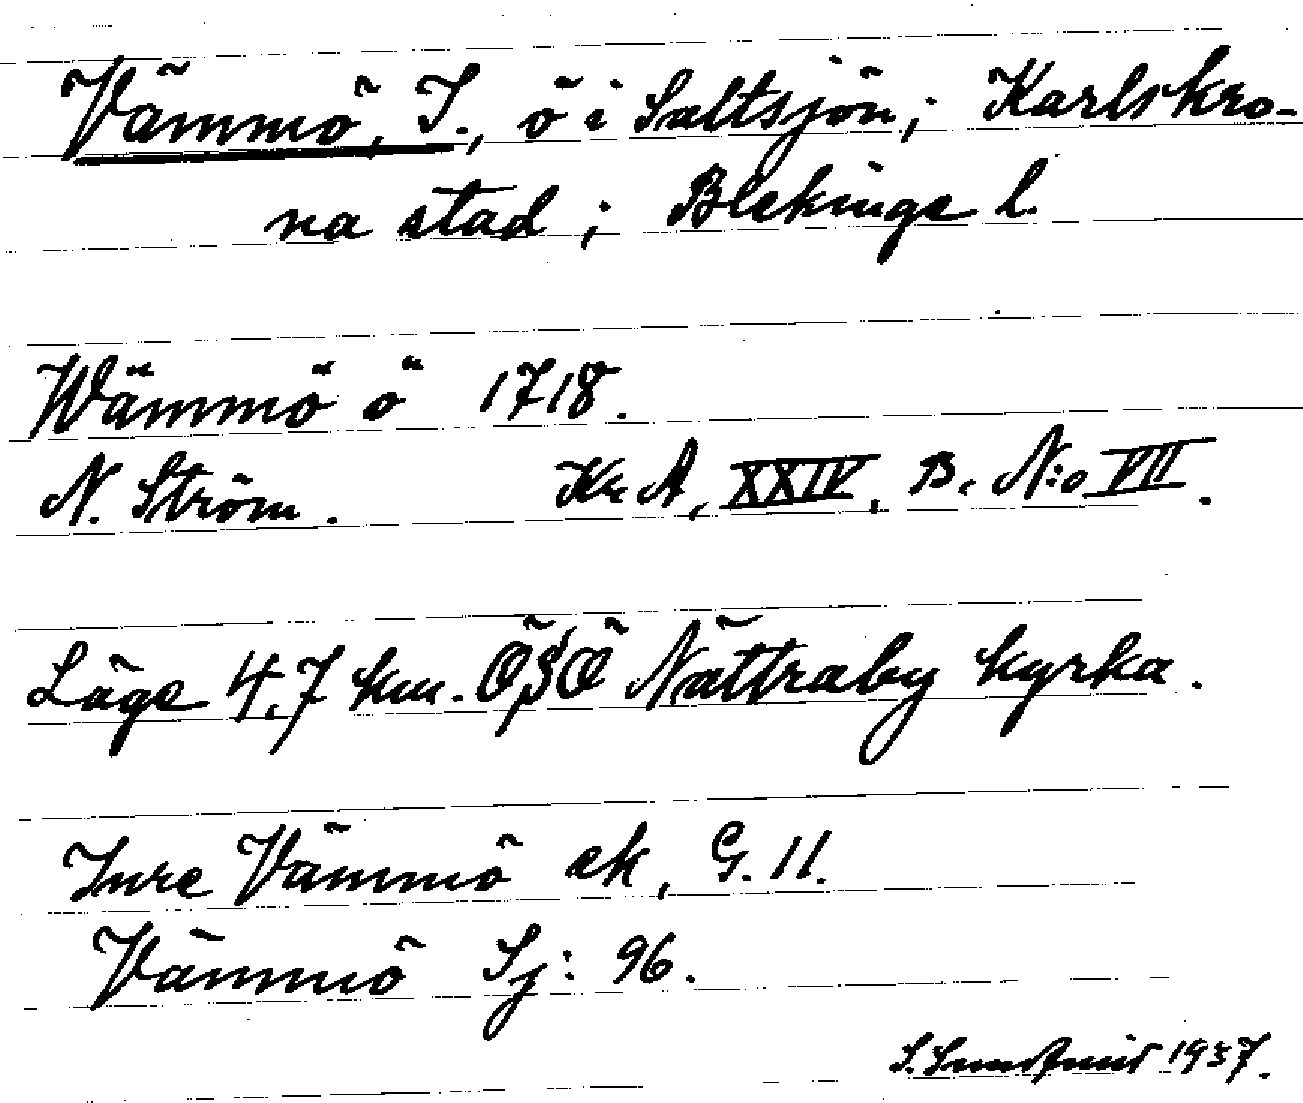 Vämmö, I., ö i Saltsjön; Karlskro-
na stad; Blekinge l.
Wämmö ö 1718.
N. Ström. Kr. A, XXIV, B. N:o VII.
Läge 4,7 km. ÖSÖ Nättraby kyrka.
Inre Vämmö ek, G. 11.
Vämmö Sj: 96.
S. 1937.